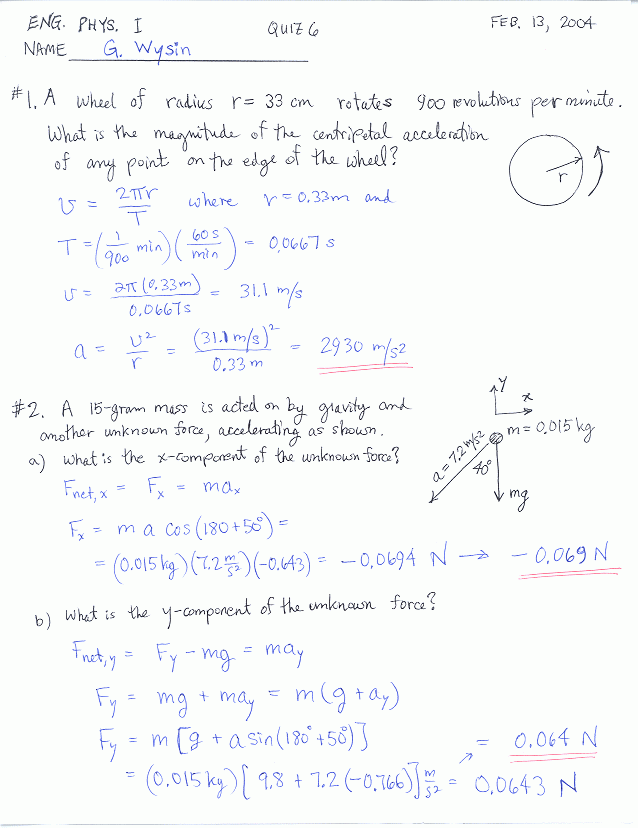 ENG. PHYS. I QUIZ 6 FEB. 13, 2004
NAME G. Wysin
#1. A wheel of radius r = 33 cm rotates 900 revolutions per minute.
What is the magnitude of the centripetal acceleration
of any point on the edge of the wheel?
r
v = 2πr / T where r = 0.33m and
T = (1/900 min) (60 s / min) = 0.0667 s
v = 2π (0.33m) / 0.0667s = 31.1 m/s
a = v² / r = (31.1 m/s)² / 0.33 m = 2930 m/s²
#2. A 15-gram mass is acted on by gravity and
another unknown force, accelerating as shown.
y
x
m = 0.015 kg
a = 7.2 m/s²
40°
mg
a) What is the x-component of the unknown force?
Fnet,x = Fx = max
Fx = m a cos(180+50°) =
= (0.015 kg)(7.2 m/s²)(-0.643) = -0.0694 N → -0.069 N
b) What is the y-component of the unknown force?
Fnet,y = Fy - mg = may
Fy = mg + may = m(g + ay)
Fy = m [g + a sin(180° + 50°)] = 0.064 N
= (0.015 kg) [9.8 + 7.2 (-0.766)] m/s² = 0.0643 N